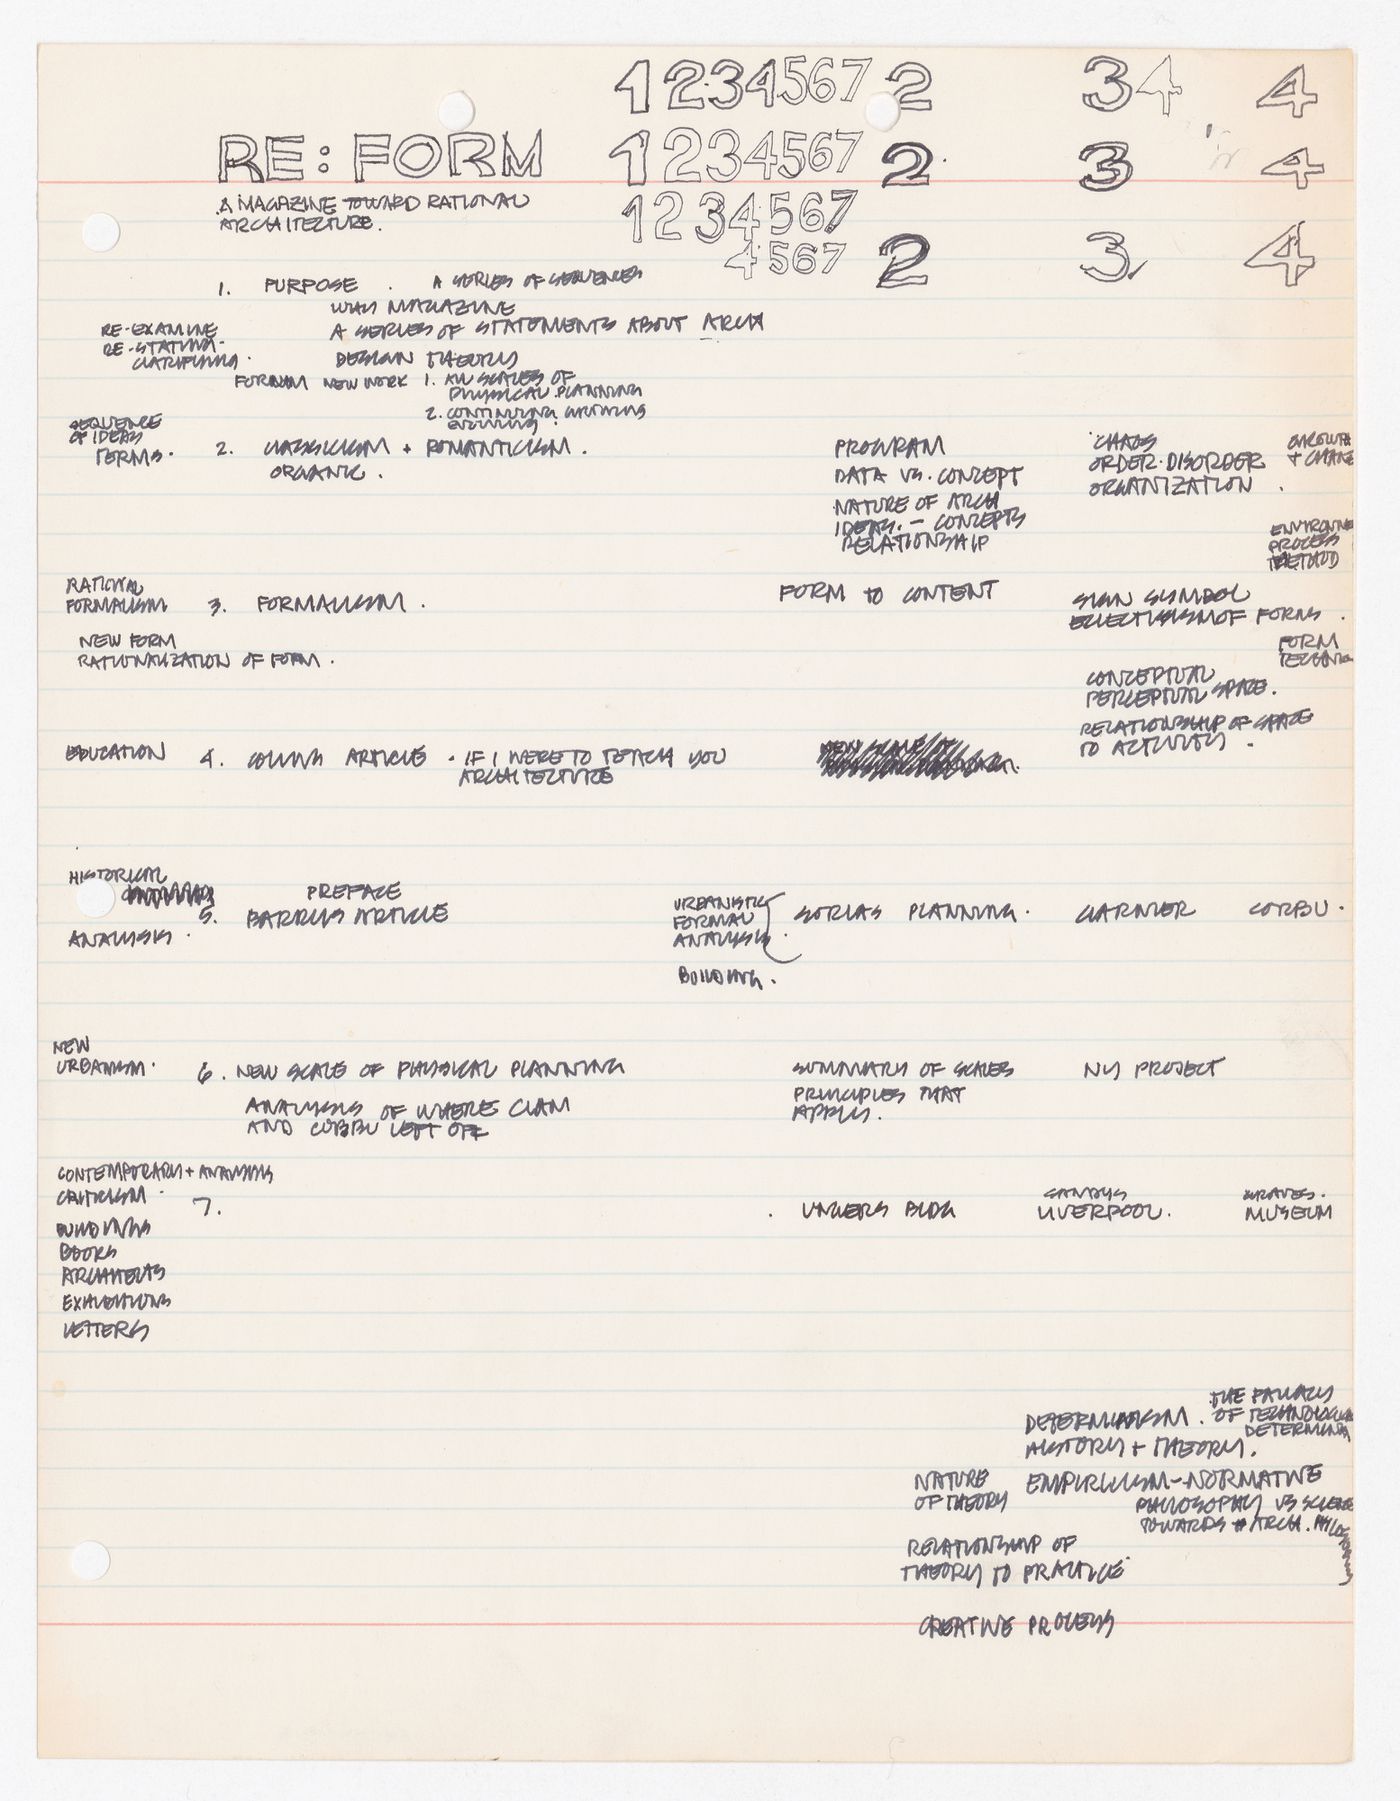 1 2 3 4 5 6 7 2 3 4 4
RE: FORM 1 2 3 4 5 6 7 2 3 4
A MAGAZINE TOWARD RATIONAL
ARCHITECTURE.
1 2 3 4 5 6 7
4 5 6 7 2 3. 4
1. PURPOSE . A SERIES OF SEQUENCES
WHY MAGAZINE
A SERIES OF STATEMENTS ABOUT ARCH
DESIGN THEORY
RE-EXAMINE
RE-STATING-
CLARIFYING.
FORMUM NEW WORK 1. ALL SCALES OF
PHYSICAL PLANNING
2. CONTINUING GROWING
EVOLVING.
SEQUENCE
OF IDEAS
TERMS.
2. CLASSICISM + ROMANTICISM.
ORGANIC.
PROGRAM
DATA VS. CONCEPT
NATURE OF ARCH
IDEAS. - CONCEPTS
RELATIONSHIP
CHAOS
ORDER-DISORDER
ORGANIZATION.
GROWTH
+ CHANGE
ENVIRONME
PROCESS
METHOD
RATIONAL
FORMALISM 3. FORMALISM.
NEW FORM
RATIONALIZATION OF FORM.
FORM TO CONTENT
SIGN SYMBOL
ECLECTISISM OF FORMS.
FORM
CONCEPTUAL
PERCEPTUAL SPACE.
RELATIONSHIP OF SPACE
TO ACTIVITY.
EDUCATION 4. COLLINS ARTICLE. IF I WERE TO TEACH YOU
ARCHITECTURE
HISTORICAL
ANALYSIS.
PREFACE
5. BARRUS ARTICLE
URBANISTIC
FORMAL
ANALYSIS.
BUILDING.
SORIAS PLANNING. GARNIER CORBU.
NEW
URBANISM. 6. NEW SCALE OF PHYSICAL PLANNING
ANALYSIS OF WHERE CIAM
AND CORBU LEFT OFF
SUMMARY OF SCALES
PRINCIPLES THAT
APPLY.
NY PROJECT
CONTEMPORARY + ANALYSIS
CRITICISM. 7.
BUILDINGS
BOOKS
ARCHITECTS
EXHIBITIONS
LETTERS
. UNGERS BLDG
SANDYS
LIVERPOOL.
GRAVES.
MUSEUM
THE FALLACY
OF TECHNOLOGICAL
DETERMINA
DETERMINISM.
HISTORY + THEORY.
NATURE
OF THEORY
EMPIRICISM-NORMATIVE
PHILOSOPHY VS SCIENCE
TOWARDS ARCH. PHILOSOPHY
RELATIONSHIP OF
THEORY TO PRACTICE
CREATIVE PROCESS